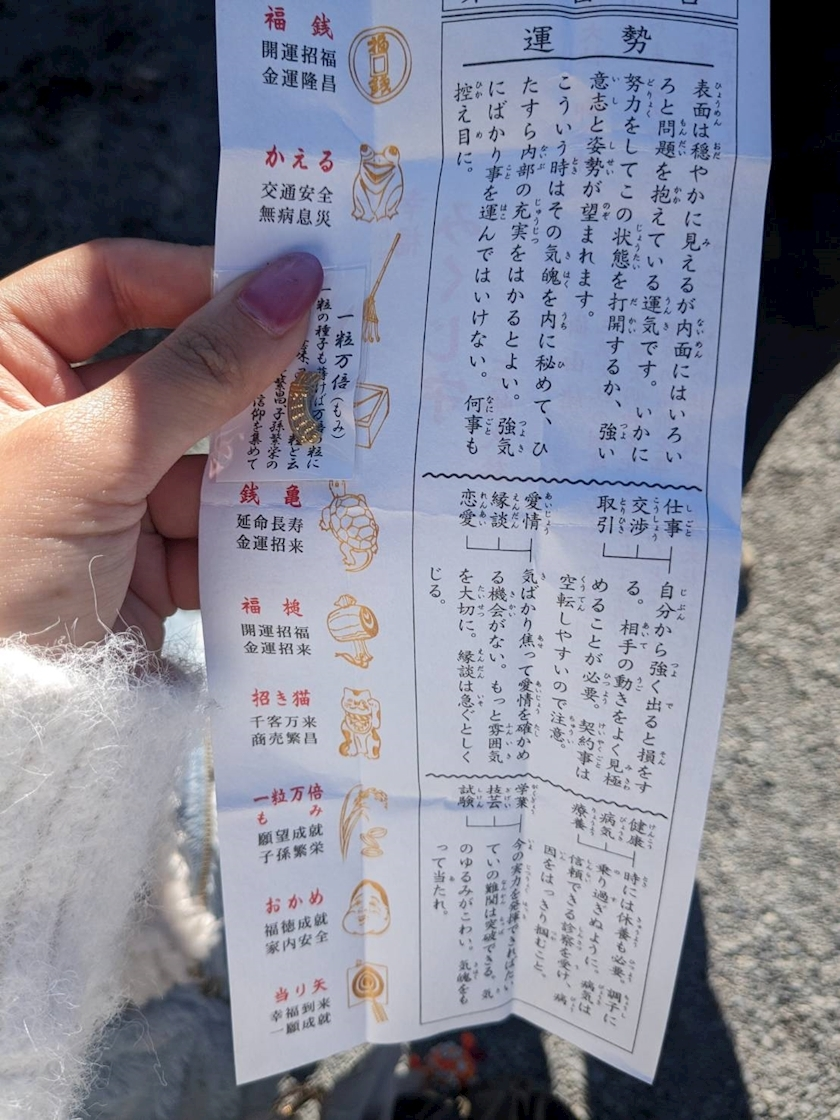 運勢
表面は穏やかに見えるが内面にはいろい
ろと問題を抱えている運気です。いかに
努力をしてこの状態を打開するか、強い
意志と姿勢が望まれます。
こういう時はその気魄を内に秘めて、ひ
たすら内部の充実をはかるとよい。強気
にばかり事を運んではいけない。何事も
控え目に。
仕事
交渉
取引
自分から強く出ると損をす
る。相手の動きをよく見極
めることが必要。契約事は
空転しやすいので注意。
愛情
縁談
恋愛
気ばかり焦って愛情を確かめ
る機会がない。もっと雰囲気
を大切に。縁談は急ぐとしく
じる。
健康
病気
療養
時には休養も必要。調子に
乗り過ぎぬように。病気は
信頼できる診察を受け、病
因をはっきり掴むこと。
学業
技芸
試験
今の実力を発揮できればたい
ていの難関は突破できる。気
のゆるみがこわい。気魄をも
って当たれ。
福銭
開運招福
金運隆昌
福
銭
かえる
交通安全
無病息災
一粒万倍(もみ)
一粒の種子も蒔けば万倍の粒に
粒と云
繁昌子孫繁栄の
信仰を集めて
銭亀
延命長寿
金運招来
福槌
開運招福
金運招来
招き猫
千客万来
商売繁昌
一粒万倍
もみ
願望成就
子孫繁栄
おかめ
福徳成就
家内安全
当り矢
幸福到来
一願成就